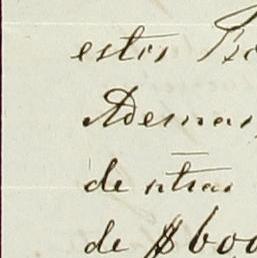 estos
Ademas
de otras
de $600